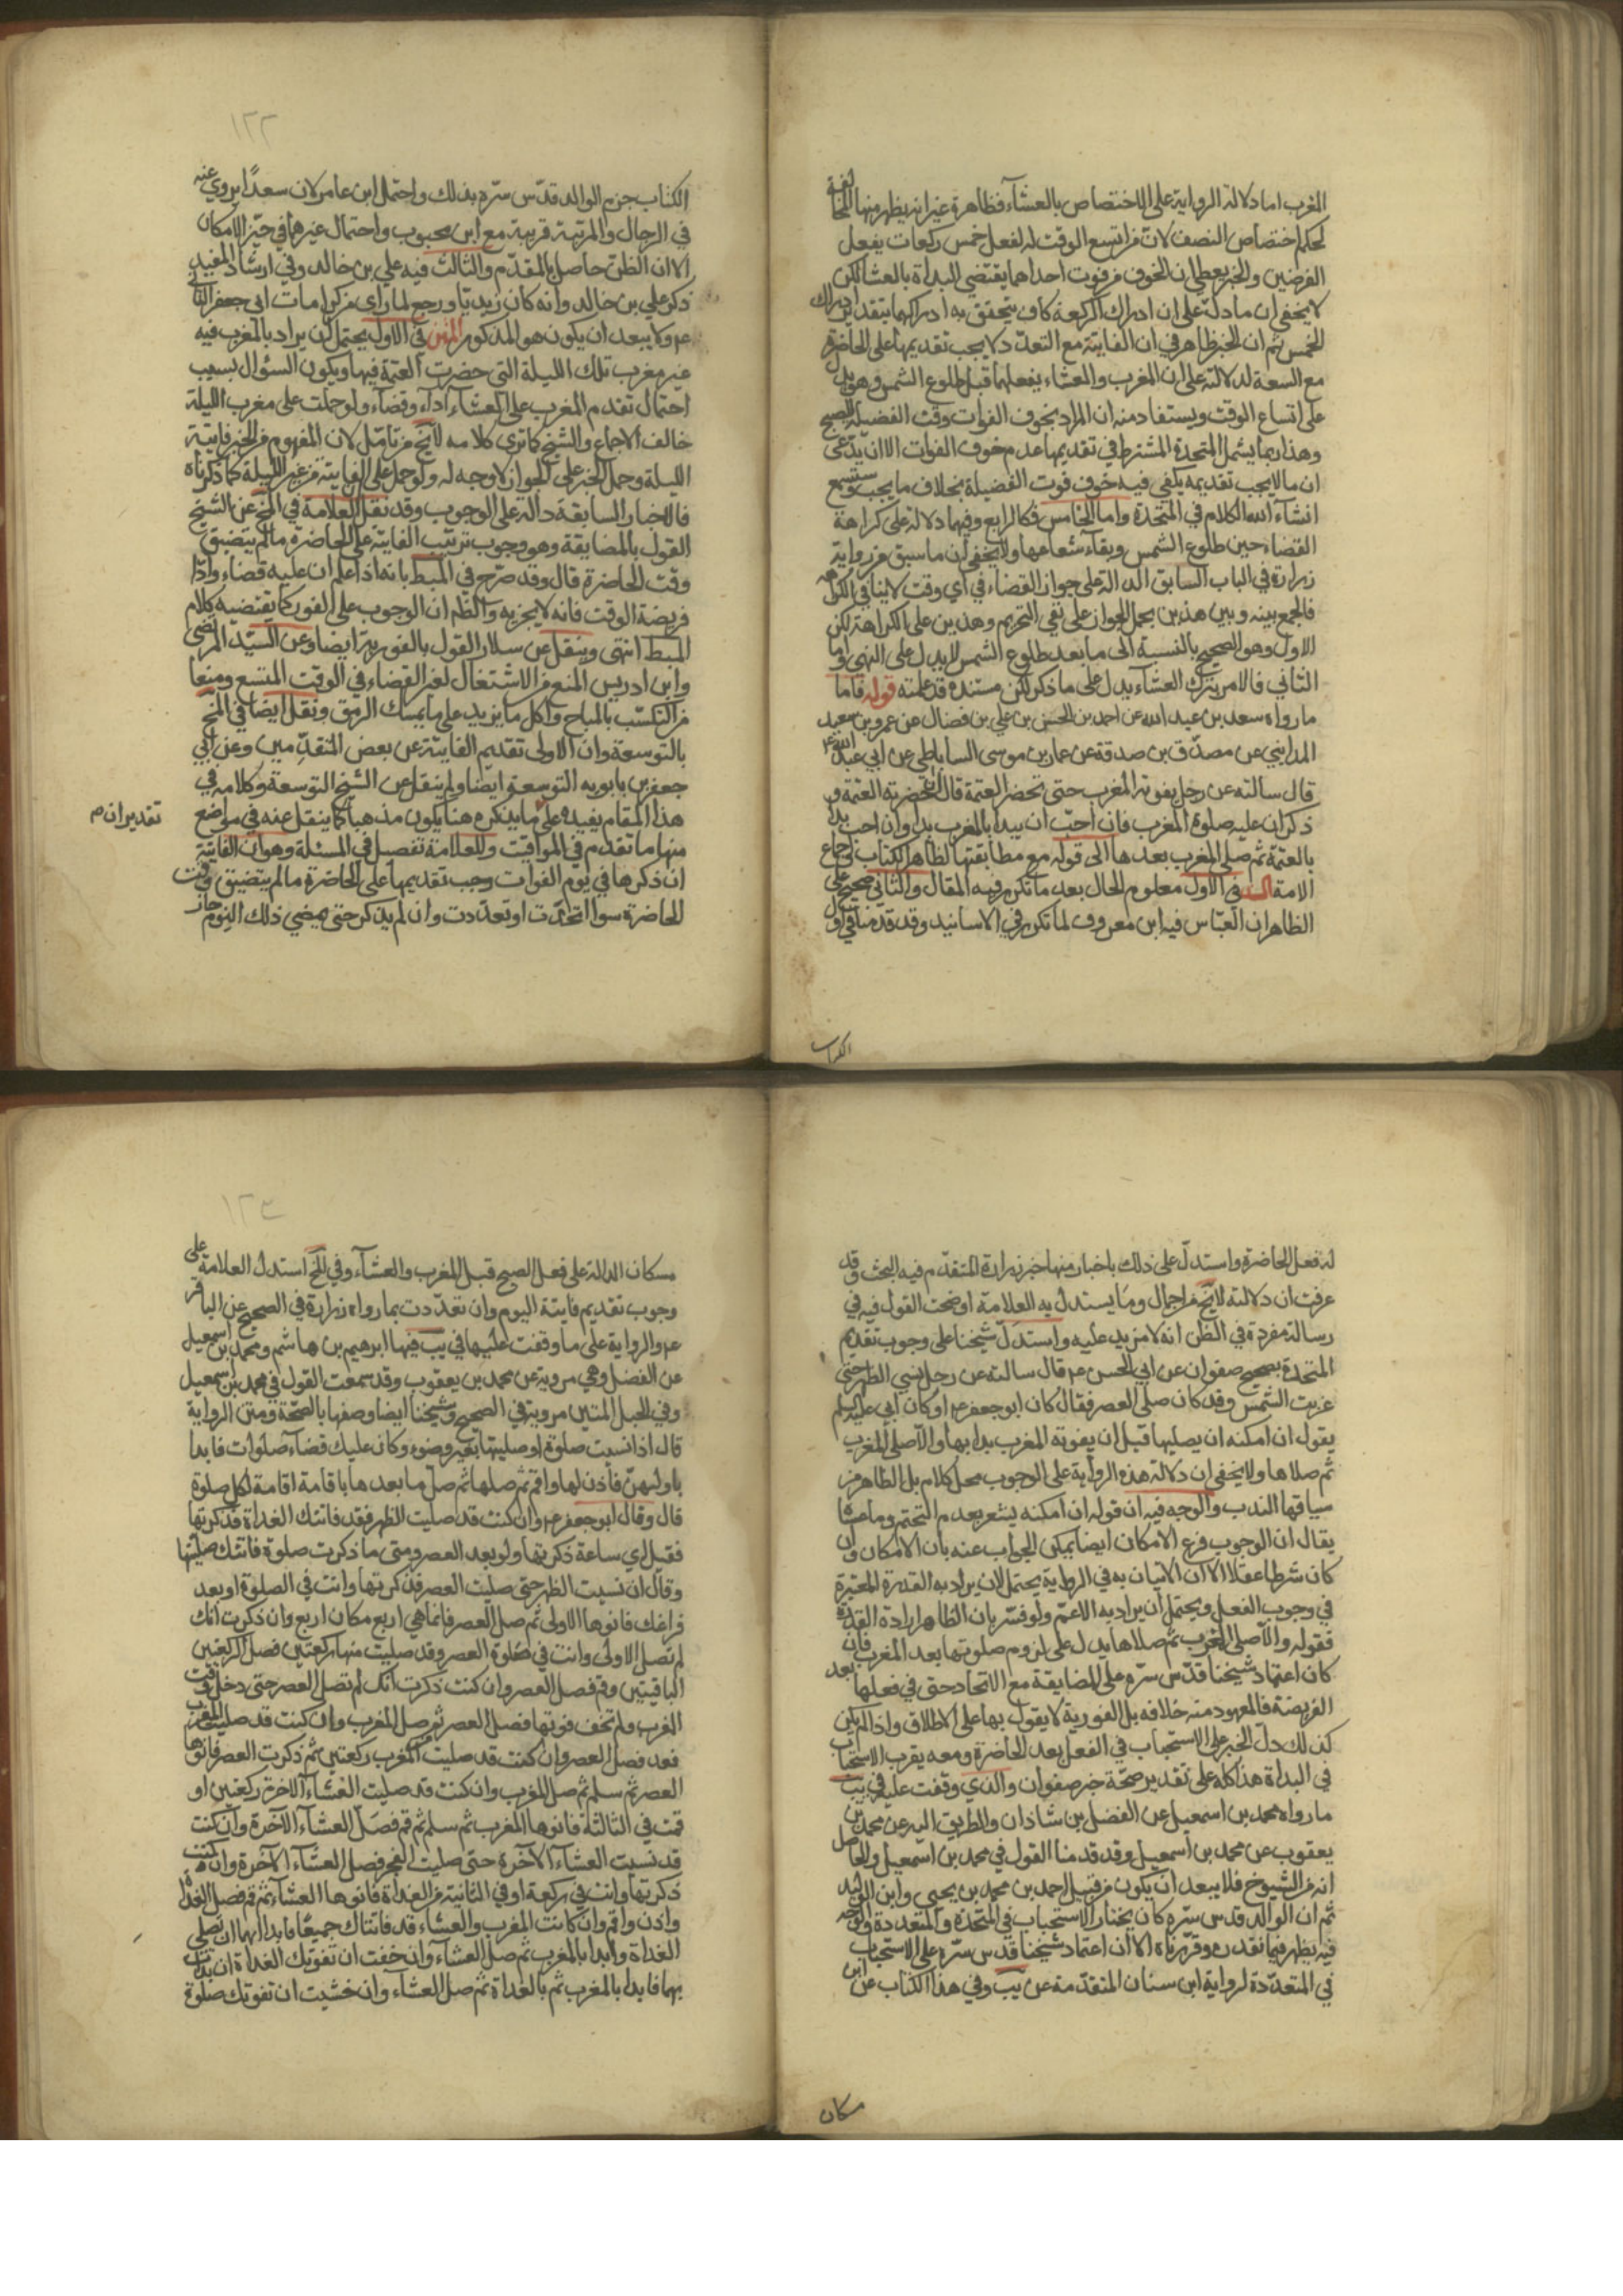 المغرب اما دلالة الرواية على الاختصاص بالعشاء فظاهرة غير انه يظهر منها المخالفة
لحكم اختصاص النصف لان من اتسع الوقت له لفعل خمس ركعات يفعل
الفرضين والخبر يعطي ان الخوف من فوت احداهما يقتضي البداة بالعشا لكن
لا يخفى ان ما دل على ان ادراك الركعة كاف يتحقق به ادراكهما بتقدير ادراك
الخمس ثم ان الخبر ظاهر في ان الفايتة مع التعدد لا يجب تقديمها على الحاضرة
مع السعة لدلالته على ان المغرب والعشاء يفعلهما قبل طلوع الشمس وهو يدل
على اتساع الوقت ويستفاد منه ان المراد بخوف الفوات وقت الفضيلة للصبح
وهذا ربما يشمل المتحدة المشترط في تقديمها عدم خوف الفوات الا ان يدعى
ان ما لا يجب تقديمه يكفي فيه خوف فوت الفضيلة بخلاف ما يجب وستسمع
انشاء الله الكلام في المتحدة واما الخامس فكالرابع وفيهما دلالة على كراهة
القضاء حين طلوع الشمس وبقاء شعاعها ولا يخفى ان ما سبق من رواية
زرارة في الباب السابق الدالة على جواز القضاء في اي وقت لا ينافي الكراهة
فالجمع بينه وبين هذين بحمل الجواز على نفي التحريم وهذين على الكراهة لكن
الاول وهو الصحيح بالنسبة الى ما بعد طلوع الشمس لا يدل على النهي واما
الثاني فالامر بترك العشاء يدل على ما ذكر لكن مستنده قد علمته قوله فاما
ما رواه سعد بن عبد الله عن احمد بن الحسن بن علي بن فضال عن عمرو بن سعيد
المدايني عن مصدق بن صدقة عن عمار بن موسى الساباطي عن ابي عبد الله ع
قال سالته عن رجل يفوته المغرب حتى تحضر العتمة قال ان حضرته العتمة و
ذكر ان عليه صلوة المغرب فان احب ان يبدا بالمغرب بدا وان احب بدا
بالعتمة ثم صلى المغرب بعدها الى قوله مع مطابقتها لظاهر الكتاب واجماع
الامة السند في الاول معلوم الحال بعد ما تكرر فيه المقال والثاني صحيح على
الظاهر ان العباس فيه ابن معروف لما تكرر في الاسانيد وقد قدمنا في اول
الكتاب
١٢٢
الكتاب جزم الوالد قدس سره بذلك واحتمل ابن عامر لان سعدًا يروي عنه
في الرجال والمرتبة قريبة مع ابن محبوب واحتمال غيرهما في حيز الامكان
الا ان الظن حاصل بالمقدم والثالث فيه علي بن خالد وفي ارشاد المفيد
ذكر علي بن خالد وانه كان زيديا ورجع لما راى من كرامات ابي جعفر الثاني
ع ولا يبعد ان يكون هو المذكور المتن في الاول يحتمل ان يراد بالمغرب فيه
غير مغرب تلك الليلة التي حضرت العتمة فيها ويكون السؤال بسبب
احتمال تقدم المغرب على العشاء اداء وقضاء ولو حملت على مغرب الليلة
خالف الاجماع والشيخ كما ترى كلامه لا يخ من تامل لان المفهوم من الخبر فايتة
الليلة وحمل الخبر على الجواز لا وجه له ولو حمل على الفايتة من غير الليلة كما ذكرناه
فالاخبار السابقة دالة على الوجوب وقد نقل العلامة في المخ عن الشيخ
القول بالمضايقة وهو وجوب ترتيب الفايتة على الحاضرة ما لم يتضيق
وقت الحاضرة قال وقد صرح في المبسط بانه اذا علم ان عليه قضاء وادا
فريضة الوقت فانه لا يجزيه والظم ان الوجوب على الفور كما يقتضيه كلام
المبسط انتهى وينقل عن سلار القول بالفورية ايضا وعن السيد المرتضى
وابن ادريس المنع من الاشتغال لغير القضاء في الوقت المتسع ومنعا
من التكسب بالمباح واكل ما يزيد على ما يمسك الرمق ونقل ايضا في المخ
بالتوسعة وان الاولى تقديم الفايتة عن بعض المتقدمين وعن ابي
جعفر بن بابويه التوسعة ايضا ولم ينقل عن الشيخ التوسعة وكلامه في
هذا المقام يفيده على ما يذكره هنا يكون مذهبا كما ينقل عنه في مواضع
تقدير ان م
منها ما تقدم في المواقيت وللعلامة تفصيل في المسئلة وهو ان الفايتة
ان ذكرها في يوم الفوات وجب تقديمها على الحاضرة ما لم يتضيق وقت
الحاضرة سوا اتحدت او تعددت وان لم يذكر حتى يمضي ذلك اليوم جاز
له فعل الحاضرة واستدل على ذلك باخبار منها خبر زرارة المتقدم فيه البحث وقد
عرفت ان دلالته لا يخ من اجمال وما يستدل به العلامة اوضحت القول فيه في
رسالة مفردة في الظن انه لا مزيد عليه واستدل شيخنا على وجوب تقديم
المتحدة بصحيح صفوان عن ابي الحسن ع قال سالته عن رجل نسي الظهر حتى
غربت الشمس وقد كان صلى العصر فقال كان ابو جعفر ع او كان ابي عليه السلم
يقول ان امكنه ان يصليها قبل ان يفوته المغرب بدا بها والا صلى المغرب
ثم صلاها ولا يخفى ان دلالة هذه الرواية على الوجوب محل كلام بل الظاهر من
سياقها الندب والوجه فيه ان قوله ان امكنه يشعر بعدم التحتم وما عساه
يقال ان الوجوب فرع الامكان ايضا يمكن الجواب عنه بان الامكان وان
كان شرطا عقلا الا ان الاتيان به في الرواية يحتمل لان يراد به القدرة المعتبرة
في وجوب الفعل ويحتمل ان يراد به الاعم ولو فسر بان الظاهر ارادة القدرة
فقوله والا صلى المغرب ثم صلاها يدل على لزوم صلوتها بعد المغرب فان
كان اعتماد شيخنا قدس سره على المضايقة مع الاتحاد حتى في فعلها بعد
الفريضة فالمعهود منه خلافه بل الفورية لا يقول بها على الاطلاق واذا لم يكن
كذلك دل الخبر على الاستحباب في الفعل بعد الحاضرة ومعه يقرب الاستحباب
في البداة هذا كله على تقدير صحة خبر صفوان والذي وقفت عليه في يب
ما رواه محمد بن اسمعيل عن الفضل بن شاذان والطريق اليه عن محمد بن
يعقوب عن محمد بن اسمعيل وقد قدمنا القول في محمد بن اسمعيل والحاصل
انه من الشيوخ فلا يبعد ان يكون من قبيل احمد بن محمد بن يحيى وابن الوليد
ثم ان الوالد قدس سره كان يختار الاستحباب في المتحدة والمتعددة والوجه
فيه يظهر فيما تقدم وقررناه الا ان اعتماد شيخنا قدس سره على الاستحباب
في المتعددة لرواية ابن سنان المتقدمة عن يب وفي هذا الكتاب عن ابن
مسكان
١٢٣
مسكان الدالة على فعل الصبح قبل المغرب والعشاء وفي المخ استدل العلامة على
وجوب تقديم فايتة اليوم وان تعددت بما رواه زرارة في الصحيح عن الباقر
ع والرواية على ما وقفت عليها في يب فيها ابرهيم بن هاشم ومحمد بن اسمعيل
عن الفضل وهي مروية عن محمد بن يعقوب وقد سمعت القول في محمد بن اسمعيل
وفي الحبل المتين مروية في الصحيح وشيخنا ايضا وصفها بالصحة ومتن الرواية
قال اذا نسيت صلوة او صليتها بغير وضوء وكان عليك قضاء صلوات فابدا
باولهن فأذن لها واقم ثم صلها ثم صل ما بعدها باقامة اقامة لكل صلوة
قال وقال ابو جعفر ع وان كنت قد صليت الظهر فقد فاتتك الغداة فذكرتها
فصل اي ساعة ذكرتها ولو بعد العصر ومتى ما ذكرت صلوة فاتتك صليتها
وقال ان نسيت الظهر حتى صليت العصر فذكرتها وانت في الصلوة او بعد
فراغك فانوها الاولى ثم صل العصر فانما هي اربع مكان اربع وان ذكرت انك
لم تصل الاولى وانت في صلوة العصر وقد صليت منها ركعتين فصل الركعتين
الباقيتين وقم فصل العصر وان كنت ذكرت انك لم تصل العصر حتى دخل وقت
المغرب ولم تخف فوتها فصل العصر ثم صل المغرب وان كنت قد صليت المغرب
فعد فصل العصر وان كنت قد صليت من المغرب ركعتين ثم ذكرت العصر فانوها
العصر ثم سلم ثم صل المغرب وان كنت قد صليت العشاء الاخرة ركعتين او
قمت في الثالثة فانوها المغرب ثم سلم ثم قم فصل العشاء الآخرة وان كنت
قد نسيت العشاء الآخرة حتى صليت الفجر فصل العشاء الآخرة وان كنت
ذكرتها وانت في ركعة او في الثانية من الغداة فانوها العشاء ثم قم فصل الغداة
واذن واقم وان كانت المغرب والعشاء قد فاتتاك جميعا فابدا بهما ان تصلي
الغداة وابدا بالمغرب ثم صل العشاء وان خفت ان تفوتك الغداة ان بدات
بهما فابدا بالمغرب ثم بالغداة ثم صل العشاء وان خشيت ان تفوتك صلوة